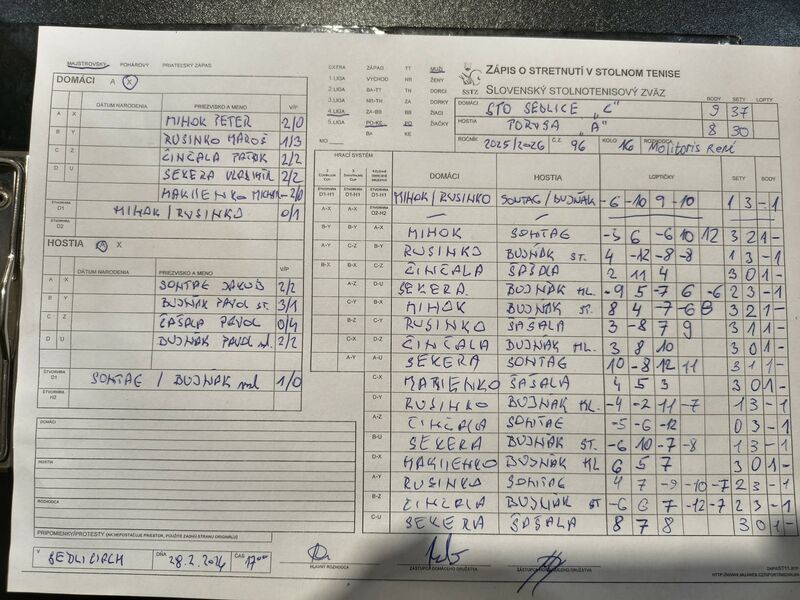 MAJSTROVSKÝ POHÁROVÝ PRIATEĽSKÝ ZÁPAS
DOMÁCI A X
DÁTUM NARODENIA PRIEZVISKO A MENO V/P
A X MIHOK PETER 2/0
B Y RUSINKO MAROŠ 1/3
C Z ČINČALA PATRIK 2/2
D U SEKERA VLADIMÍR 2/2
D1 MIHOK / RUSINKO 0/1
D2
HOSTIA A X
DÁTUM NARODENIA PRIEZVISKO A MENO V/P
A X SONTAG JAKUB 2/2
B Y BUJŇÁK PAVOL ST. 3/1
C Z ŠAŠALA PAVOL 0/4
D U BUJŇÁK PAVOL ml. 2/2
D1 SONTAG / BUJŇÁK ml 1/0
H2
DOMÁCI
HOSTIA
ROZHODCA
PRIPOMIENKY/PROTESTY (AK NEPOSTAČUJE PRIESTOR, POUŽITE ZADNÚ STRANU ORIGINÁLU)
V SEDLICIACH DŇA 28.2.2026 ČAS 17:00
EXTRA ZÁPAD TT MUŽI
1. LIGA VÝCHOD NR ŽENY
2. LIGA BA-TT TN DORCI
3. LIGA NR-TN ZA DORKY
4. LIGA ZA-BB BB ŽIACI
5. LIGA PO-KE PO ŽIAČKY
BA KE
MO
ZÁPIS O STRETNUTÍ V STOLNOM TENISE
SSTZ SLOVENSKÝ STOLNOTENISOVÝ ZVÄZ
BODY SETY LOPTY
DOMÁCI STO SEDLICE "C" 9 37
HOSTIA PORUSA "A" 8 30
ROČNÍK 2025/2026 Č.Z. 96 KOLO 16 ROZHODCA Molitoris René
HRACÍ SYSTÉM
DOMÁCI HOSTIA LOPTIČKY SETY BODY
D1-H1 D1-H1 D1-H1 MIHOK / RUSINKO SONTAG / BUJŇÁK -6 -10 9 -10 1 3 - 1
A-X A-X D2-H2
B-Y B-Y A-X MIHOK SONTAG -3 6 -6 10 12 3 2 1 -
A-Y C-Z B-Y RUSINKO BUJŇÁK ST. 4 -12 -8 -8 1 3 - 1
B-X B-X C-Z ČINČALA ŠAŠALA 2 11 4 3 0 1 -
A-Z D-U SEKERA BUJŇÁK ML. -9 5 -7 6 -6 2 3 - 1
C-Y B-X MIHOK BUJŇÁK ST. 8 4 -7 -6 8 3 2 1 -
B-Z C-Y RUSINKO ŠAŠALA 3 -8 7 9 3 1 1 -
C-Z D-Z ČINČALA BUJŇÁK ML. 3 8 10 3 0 1 -
A-Y A-U SEKERA SONTAG 10 -8 12 11 3 1 1 -
C-X MAKIJENKO ŠAŠALA 4 5 3 3 0 1 -
D-Y RUSINKO BUJŇÁK ML. -4 -2 11 -7 1 3 - 1
A-Z ČINČALA SONTAG -5 -6 -12 0 3 - 1
B-U SEKERA BUJŇÁK ST. -6 10 -7 -8 1 3 - 1
D-X MAKIJENKO BUJŇÁK ML 6 5 7 3 0 1 -
A-Y RUSINKO SONTAG 4 7 -9 -10 -7 2 3 - 1
B-Z ČINČALA BUJŇÁK ST -6 6 7 -12 -7 2 3 - 1
C-U SEKERA ŠAŠALA 8 7 8 3 0 1 -
HLAVNÝ ROZHODCA ZÁSTUPCA DOMÁCEHO DRUŽSTVA ZÁSTUPCA HOSŤUJÚCEHO DRUŽSTVA